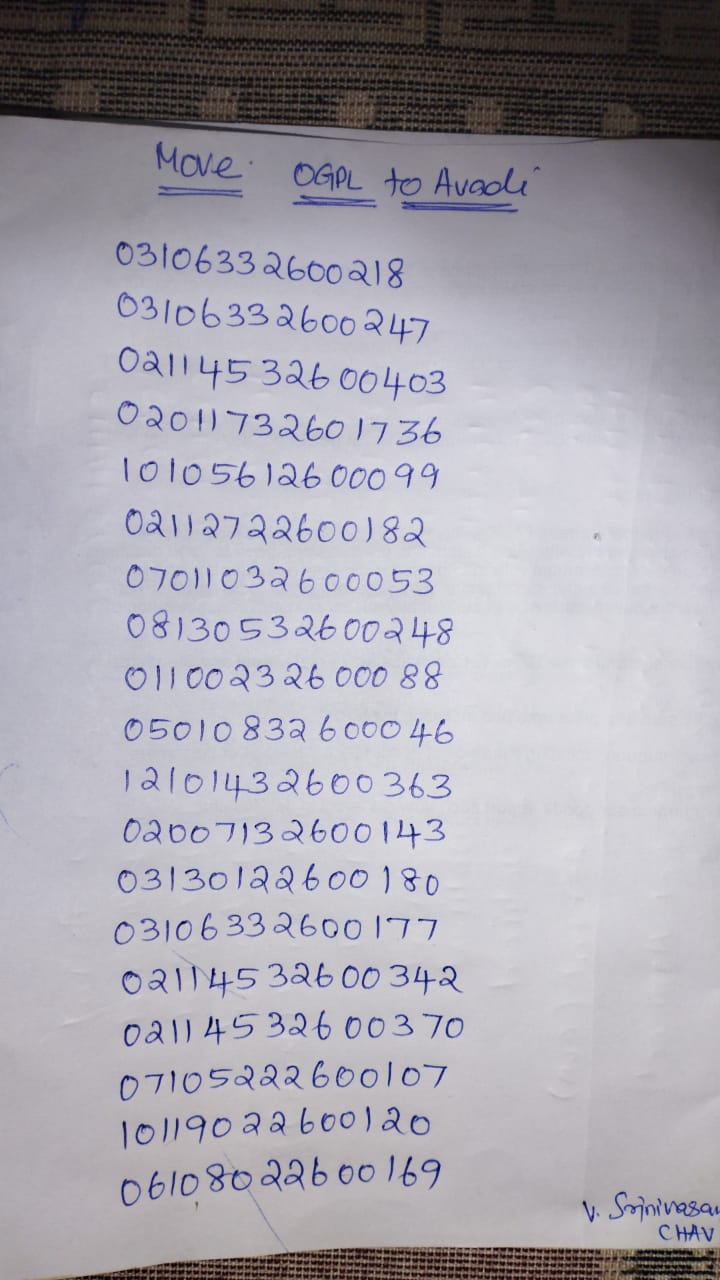 Move. OGPL to Avadi
03106332600218
03106332600247
02114532600403
02011732601736
10105612600099
02112722600182
07011032600053
08130532600248
01100232600088
05010832600046
12101432600363
02007132600143
03130122600180
03106332600177
02114532600342
02114532600370
07105222600107
10119022600120
06108022600169
V. Srinivasan
CHAV